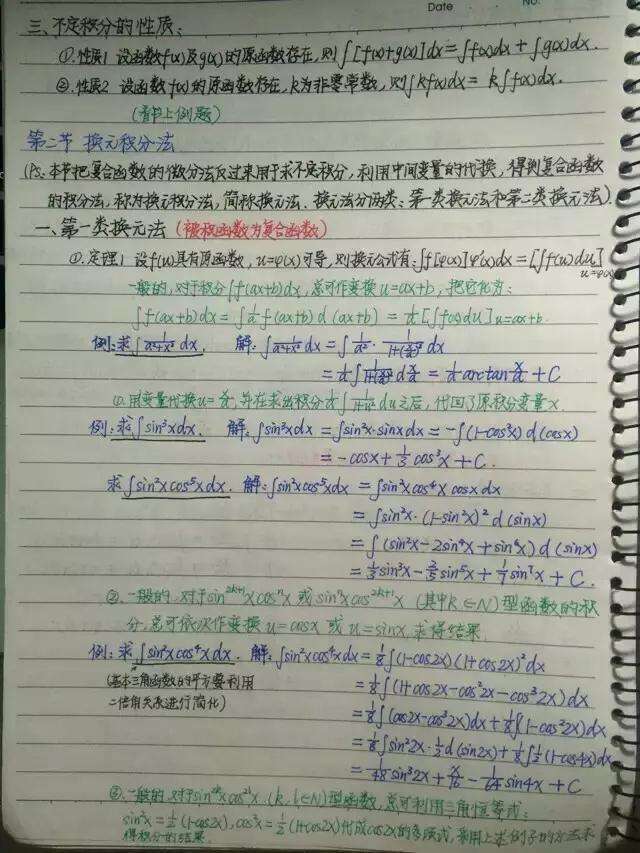 Date No.
三、不定积分的性质:
①.性质1 设函数f(x)及g(x)的原函数存在,则∫[f(x)+g(x)]dx=∫f(x)dx+∫g(x)dx.
②.性质2 设函数f(x)的原函数存在,k为非零常数,则∫kf(x)dx=k∫f(x)dx.
(看书上例题)
第二节 换元积分法
(Ps.本节把复合函数的微分法反过来用于求不定积分,利用中间变量的代换,得到复合函数
的积分法,称为换元积分法,简称换元法、换元法分两类:第一类换元法和第二类换元法).
一、第一类换元法(被积函数为复合函数)
①.定理1 设f(u)具有原函数,u=φ(x)可导,则换元公式有:∫f[φ(x)]φ'(x)dx=[∫f(u)du]u=φ(x)
一般的,对于积分∫f(ax+b)dx,总可作变换u=ax+b,把它化为:
∫f(ax+b)dx=∫1/a f(ax+b)d(ax+b)=1/a[∫f(u)du]u=ax+b.
例:求∫1/(a²+x²)dx. 解:∫1/(a²+x²)dx=∫1/a²·1/(1+(x/a)²)dx
=1/a∫1/(1+(x/a)²)d x/a=1/a arctan x/a+C
①.用变量代换u=x/a,并在求出积分1/a∫1/(1+u²)du之后,代回了原积分变量x.
例:求∫sin³xdx. 解:∫sin³xdx=∫sin²x·sinxdx=-∫(1-cos²x)d(cosx)
=-cosx+1/3cos³x+C.
求∫sin²xcos⁵xdx. 解:∫sin²xcos⁵xdx=∫sin²xcos⁴xcosxdx
=∫sin²x·(1-sin²x)²d(sinx)
=∫(sin²x-2sin⁴x+sin⁶x)d(sinx)
=1/3sin³x-2/5sin⁵x+1/7sin⁷x+C.
②.一般的,对于sin²ᵏ⁺¹xcosⁿx或sinⁿxcos²ᵏ⁺¹x(其中k∈N)型函数的积
分,总可依次作变换u=cosx或u=sinx,求得结果.
例:求∫sin²xcos⁴xdx. 解:∫sin²xcos⁴xdx=1/8∫(1-cos2x)(1+cos2x)²dx
(基本三角函数的平方要利用
=1/8∫(1+cos2x-cos²2x-cos³2x)dx
二倍角关系进行简化)
=1/8∫(cos2x-cos³2x)dx+1/8∫(1-cos²2x)dx
=1/8∫sin²2x·1/2d(sin2x)+1/8∫1/2(1-cos4x)dx
=1/48sin³2x+x/16-1/64sin4x+C
③.一般的,对于sin²ᵏxcos²ˡx(k,l∈N)型函数,总可利用三角恒等式:
sin²x=1/2(1-cos2x),cos²x=1/2(1+cos2x)化成cos2x的多项式,采用上述例子的方法求
得积分的结果.